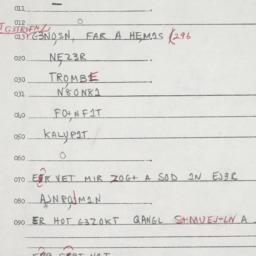 011 —
012 O
013 G3NO,SN, FAR A HEM1S 296
020 NEZ3R
030 TROMBE
031 N8ONK1
040 FO4NF1T
050 KALYP1T
060 O
070 VET MIR ZOG+ A SOD IN EJ3R
080 AJNPAJM1N
090 ER HOT G3ZOKT QANGL A